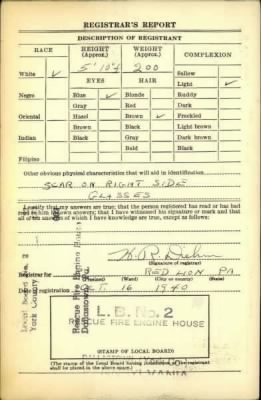 REGISTRAR'S REPORT
DESCRIPTION OF REGISTRANT
RACE
HEIGHT (Approx.)
WEIGHT (Approx.)
COMPLEXION
5' 10½
200
White ✓
Sallow
EYES
HAIR
Light ✓
Negro
Blue ✓
Blonde
Ruddy
Gray
Red
Dark
Oriental
Hazel
Brown ✓
Freckled
Brown
Black
Light brown
Indian
Black
Gray
Dark brown
Bald
Black
Filipino
Other obvious physical characteristics that will aid in identification
SCAR ON RIGHT SIDE
GLASSES
I certify that my answers are true; that the person registered has read or has had
read to him own answers; that I have witnessed his signature or mark and that
all of his answers of which I have knowledge are true, except as follows:
W. R. Diehm
(Signature of registrar)
Registrar for
RED LION PA
(Precinct) (Ward) (City or county) (State)
Date of registration OCT. 16 1940
Local Board No. 2
York County
Rescue Fire Engine House
Dallastown, Pa.
L.B. No. 2
RESCUE FIRE ENGINE HOUSE
(STAMP OF LOCAL BOARD)
(The stamp of the Local Board having jurisdiction of the registrant
shall be placed in the above space.)